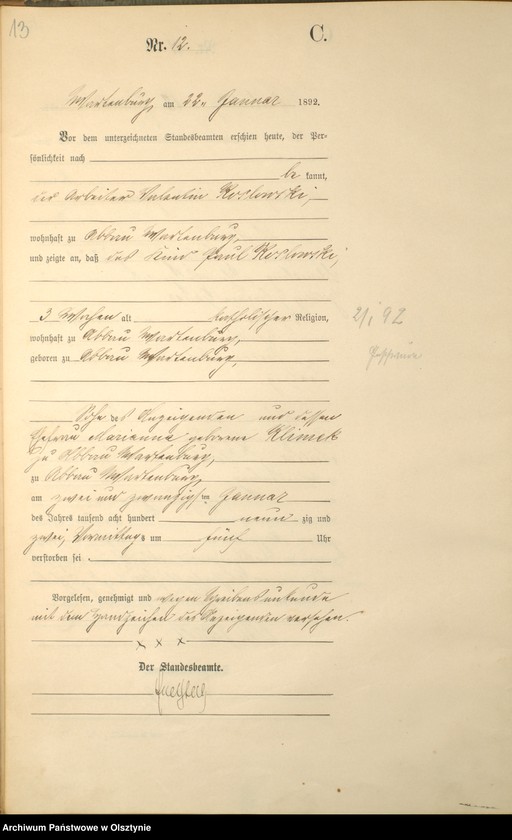 13
C.
Nr. 12.
Wartenburg, am 22ten Januar 1892.
Vor dem unterzeichneten Standesbeamten erschien heute, der Per-
sönlichkeit nach
be kannt,
der Arbeiter Valentin Koslowski,
wohnhaft zu Abbau Wartenburg,
und zeigte an, daß das Kind Paul Koslowski,
3 Wochen alt katholischer Religion,
wohnhaft zu Abbau Wartenburg,
geboren zu Abbau Wartenburg,
Sohn des Anzeigenden und dessen
Ehefrau Marianna geborene Klimek
zu Abbau Wartenburg,
zu Abbau Wartenburg,
am zwei und zwanzigsten Januar
des Jahres tausend acht hundert neun zig und
zwei, Vormittags um fünf Uhr
verstorben sei.
Vorgelesen, genehmigt und wegen Schreibensunkunde
mit dem Handzeichen des Anzeigenden versehen.
x x x
Der Standesbeamte.
2/1 92
Archiwum Państwowe w Olsztynie